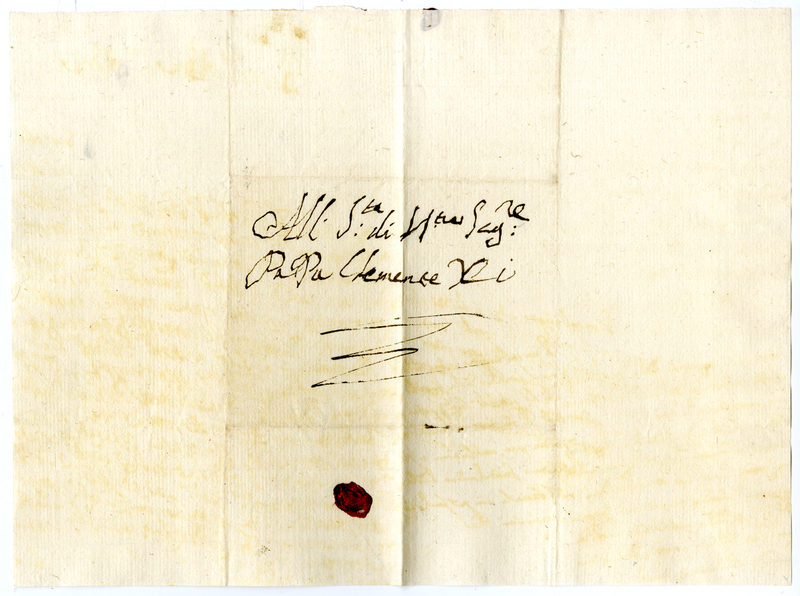 All: S.ta di N.tro Sig.re:
Papa Clemente Xi